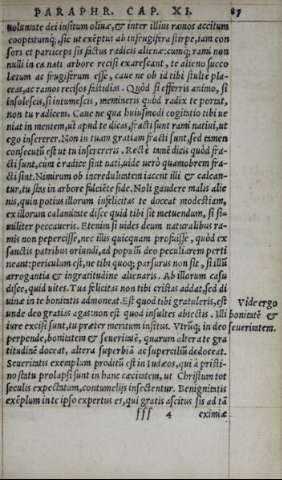 PARAPHR. CAP. XI. 87
uoluntate dei insitum oliuæ, & inter illius ramos accitum
cooptatumq;, sic ut exẽptus ab infrugifera stirpe, iam con
sors et particeps sis factus radicis alienæ: cumq; rami non
nulli in ea nati arbore recisi exarescant, tu alieno succo
lætum ac frugiferum esse, caue ne ob id tibi stulte pla-
ceas, ac ramos recisos fastidias. Quòd si efferris animo, si
insolescis, si intumescis, memineris quòd radix te portat,
non tu radicem. Caue ne qua huiusmodi cogitatio tibi ue
niat in mentem, ut apud te dicas, fracti sunt rami natiui, ut
ego insererer. Non in tuam gratiam fracti sunt, sed tamen
consecutũ est ut tu insereris. Rectè tute dicis quòd fra-
cti sunt, cum è radice sint nati, uide uerò quamobrem fra-
cti sint. Nimirum ob incredulitatem iacent illi & calcan-
tur, tu stas in arbore fulciẽte fide. Noli gaudere malis alie
nis, quin potius illorum infelicitas te doceat modestiam,
ex illorum calamitate disce quid tibi sit metuendum, si si-
militer peccaueris. Etenim si uides deum naturalibus ra-
mis non pepercisse, nec illis quicquam profuisse, quòd ex
sanctis patribus oriundi, ad populũ deo peculiarem perti
neant: periculum est, ne tibi quoq; parsurus non sit, si illũ
arrogantia & ingratitudine alienaris. Ab illorum casu
disce, quid uites. Tua felicitas non tibi cristas addat, sed di
uinæ in te bonitatis admoneat. Est quod tibi gratuleris, est
unde deo gratias agas: non est quod insultes abiectis. Illi
iure excisi sunt, tu præter meritum insitus. Vtrũq; in deo
perpende, bonitatem & seueritatẽ, quarum altera te gra
titudinẽ doceat, altera superbiã ac supercilium dedoceat.
Seueritatis exemplum proditũ est in Iudæos, qui à pristi-
no statu prolapsi sunt in hanc cæcitatem, ut Christum tot
seculis expectatum, contumelijs insectentur. Benignitatis
exẽplum in te ipso expertus es, qui gratis ascitus sis ad tã
Vide ergo
bonitatẽ &
seueritatem.
fff 4 eximiæ